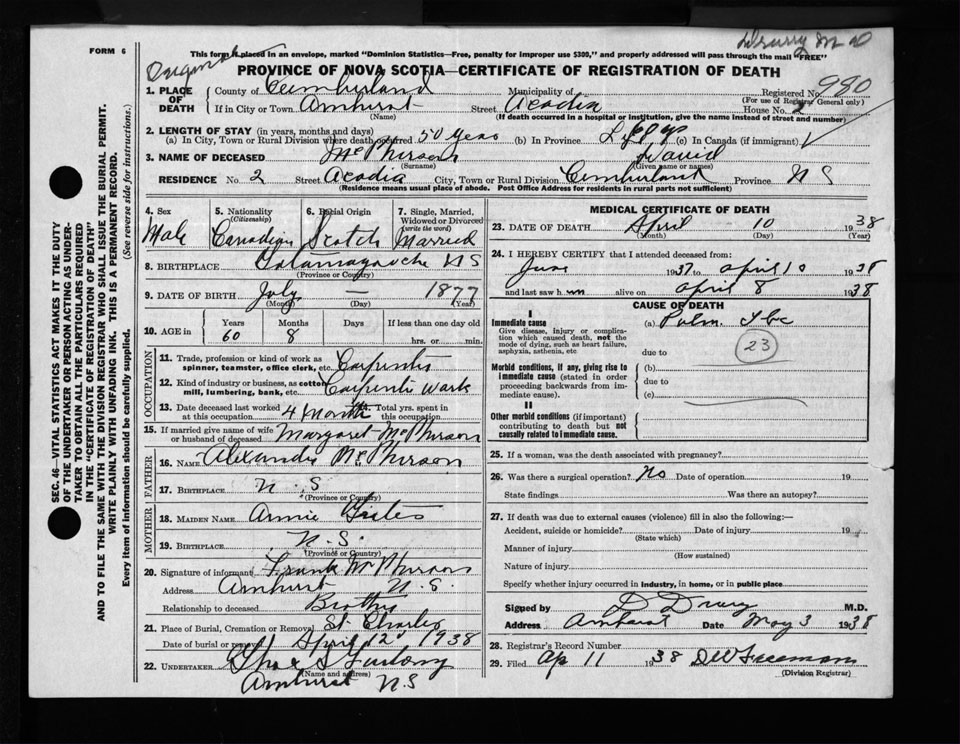 FORM 6
This form if placed in an envelope, marked "Dominion Statistics—Free, penalty for improper use $300," and properly addressed will pass through the mail "FREE"
PROVINCE OF NOVA SCOTIA—CERTIFICATE OF REGISTRATION OF DEATH
Original
Drury M D
1. PLACE OF DEATH
County of Cumberland Municipality of Registered No. 980
(For use of Registrar General only)
If in City or Town Amherst Street Acadia House No. 2
(Name) (If death occurred in a hospital or institution, give the name instead of street and number)
2. LENGTH OF STAY (in years, months and days)
(a) In City, Town or Rural Division where death occurred 50 years (b) In Province (c) In Canada (if immigrant)
3. NAME OF DECEASED McPherson David
(Surname) (Given name or names)
RESIDENCE No. 2 Street Acadia City, Town or Rural Division Cumberland Province N S
(Residence means usual place of abode. Post Office Address for residents in rural parts not sufficient)
4. Sex Male
5. Nationality (Citizenship) Canadian
6. Racial Origin Scotch
7. Single, Married, Widowed or Divorced (write the word) Married
8. BIRTHPLACE Tatamagouche N S
(Province or Country)
9. DATE OF BIRTH July — 1877
(Month) (Day) (Year)
10. AGE in Years 60 Months 8 Days If less than one day old hrs. or min.
OCCUPATION
11. Trade, profession or kind of work as spinner, teamster, office clerk, etc. Carpenter
12. Kind of industry or business, as cotton mill, lumbering, bank, etc. Carpenter Work
13. Date deceased last worked at this occupation 4 Months 14. Total yrs. spent in this occupation
15. If married give name of wife or husband of deceased Margaret McPherson
FATHER
16. NAME Alexander McPherson
17. BIRTHPLACE N. S
(Province or Country)
MOTHER
18. MAIDEN NAME Annie
19. BIRTHPLACE N. S.
(Province or Country)
20. Signature of informant Frank McPherson
Address Amherst N. S.
Relationship to deceased Brother
21. Place of Burial, Cremation or Removal St Charles
Date of burial or removal April 12 1938
22. UNDERTAKER Chas S Furlong
(Name and address)
Amherst N. S
MEDICAL CERTIFICATE OF DEATH
23. DATE OF DEATH April 10 1938
(Month) (Day) (Year)
24. I HEREBY CERTIFY that I attended deceased from:
June 1937 to April 10 1938
and last saw him alive on April 8 1938
CAUSE OF DEATH
I
Immediate cause
Give disease, injury or complication which caused death, not the mode of dying, such as heart failure, asphyxia, asthenia, etc
(a) Pulm. Tbc
23
due to
Morbid conditions, if any, giving rise to immediate cause (stated in order proceeding backwards from immediate cause).
(b)
due to
(c)
II
Other morbid conditions (if important) contributing to death but not causally related to immediate cause.
25. If a woman, was the death associated with pregnancy?
26. Was there a surgical operation? No Date of operation 19
State findings Was there an autopsy?
27. If death was due to external causes (violence) fill in also the following:—
Accident, suicide or homicide? Date of injury 19
(State which)
Manner of injury
(How sustained)
Nature of injury
Specify whether injury occurred in industry, in home, or in public place
Signed by D Drury M.D.
Address Amherst Date May 3 1938
28. Registrar's Record Number
29. Filed Ap 11 1938 D W Freeman
(Division Registrar)
SEC. 46—VITAL STATISTICS ACT MAKES IT THE DUTY
OF THE UNDERTAKER OR PERSON ACTING AS UNDER-
TAKER TO OBTAIN ALL THE PARTICULARS REQUIRED
IN THE "CERTIFICATE OF REGISTRATION OF DEATH"
AND TO FILE THE SAME WITH THE DIVISION REGISTRAR WHO SHALL ISSUE THE BURIAL PERMIT.
WRITE PLAINLY WITH UNFADING INK. THIS IS A PERMANENT RECORD.
Every item of information should be carefully supplied. (See reverse side for instructions.)